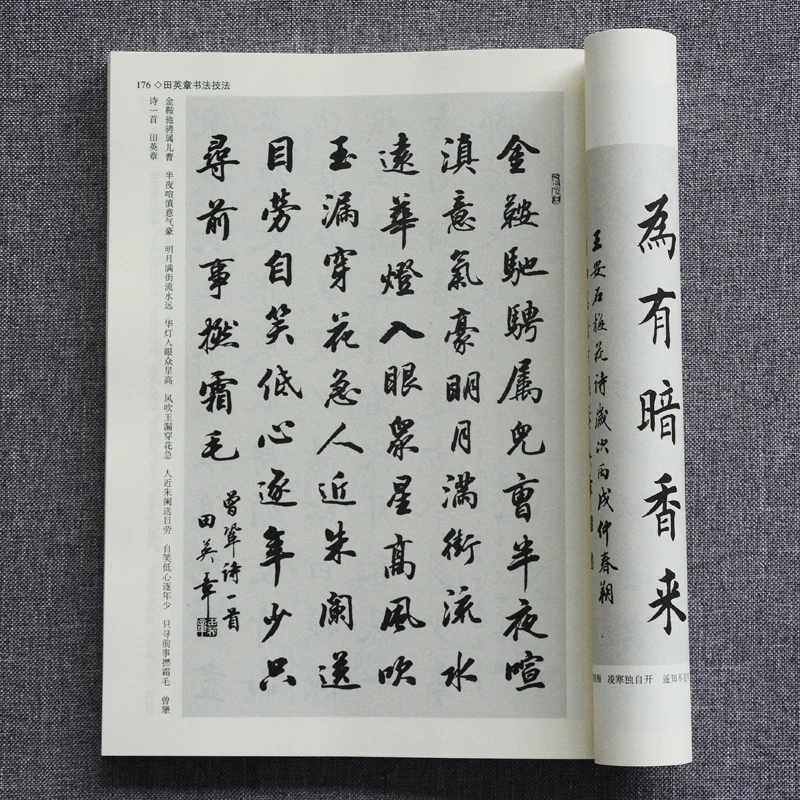 176 ◇田英章书法技法
金鞍驰骋属儿曹 半夜喧滇意气豪 明月满街流水远 华灯入眼众星高 风吹玉漏穿花急 人近朱阑送目劳 自笑低心逐年少 只寻前事撚霜毛 曾
诗一首 田英章
金鞍馳騁属兒曹半夜喧
滇意氣豪明月满街流水
遠華燈入眼眾星高風吹
玉漏穿花急人近朱阑送
目劳自笑低心逐年少只
尋前事撚霜毛
曾鞏诗一首
田英章
為有暗香来
王安石梅花诗歲次丙戌仲春朔
凌寒独自开 遥知不